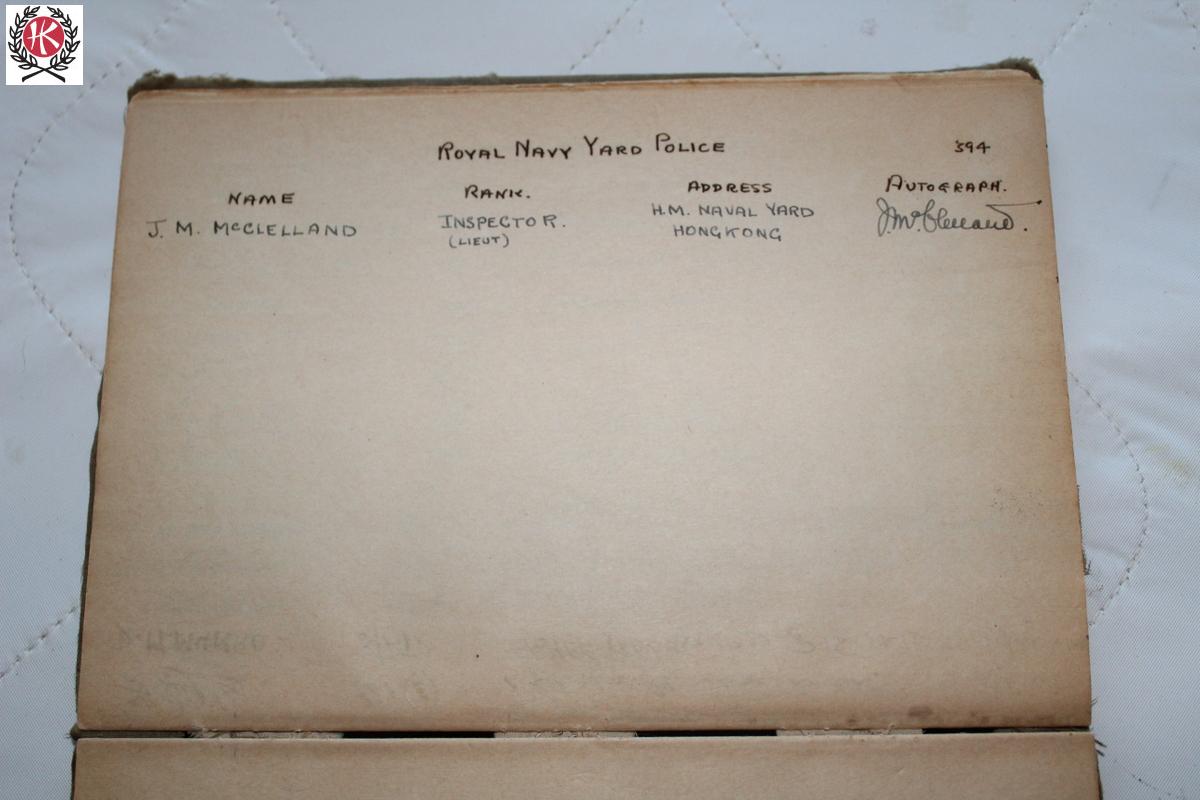 HK
ROYAL NAVY YARD POLICE 394
NAME RANK. ADDRESS AUTOGRAPH.
J. M. McCLELLAND INSPECTOR. H.M. NAVAL YARD J. McClelland.
(LIEUT) HONGKONG